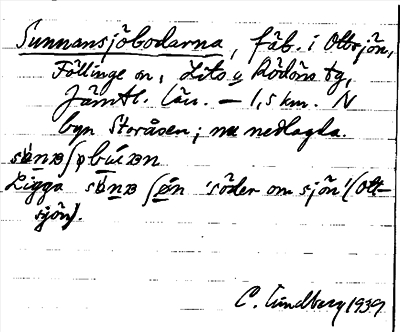 Sunnansjöbodarna, fäb. i Ottsjön,
Föllinge sn, Lits o Rödöns tg,
Jämtl. län. – 1,5 km. N
byn Storåsen; nu nedlagda.
Ligga söder om sjön (Ott-
sjön).
C. Lundberg 1939